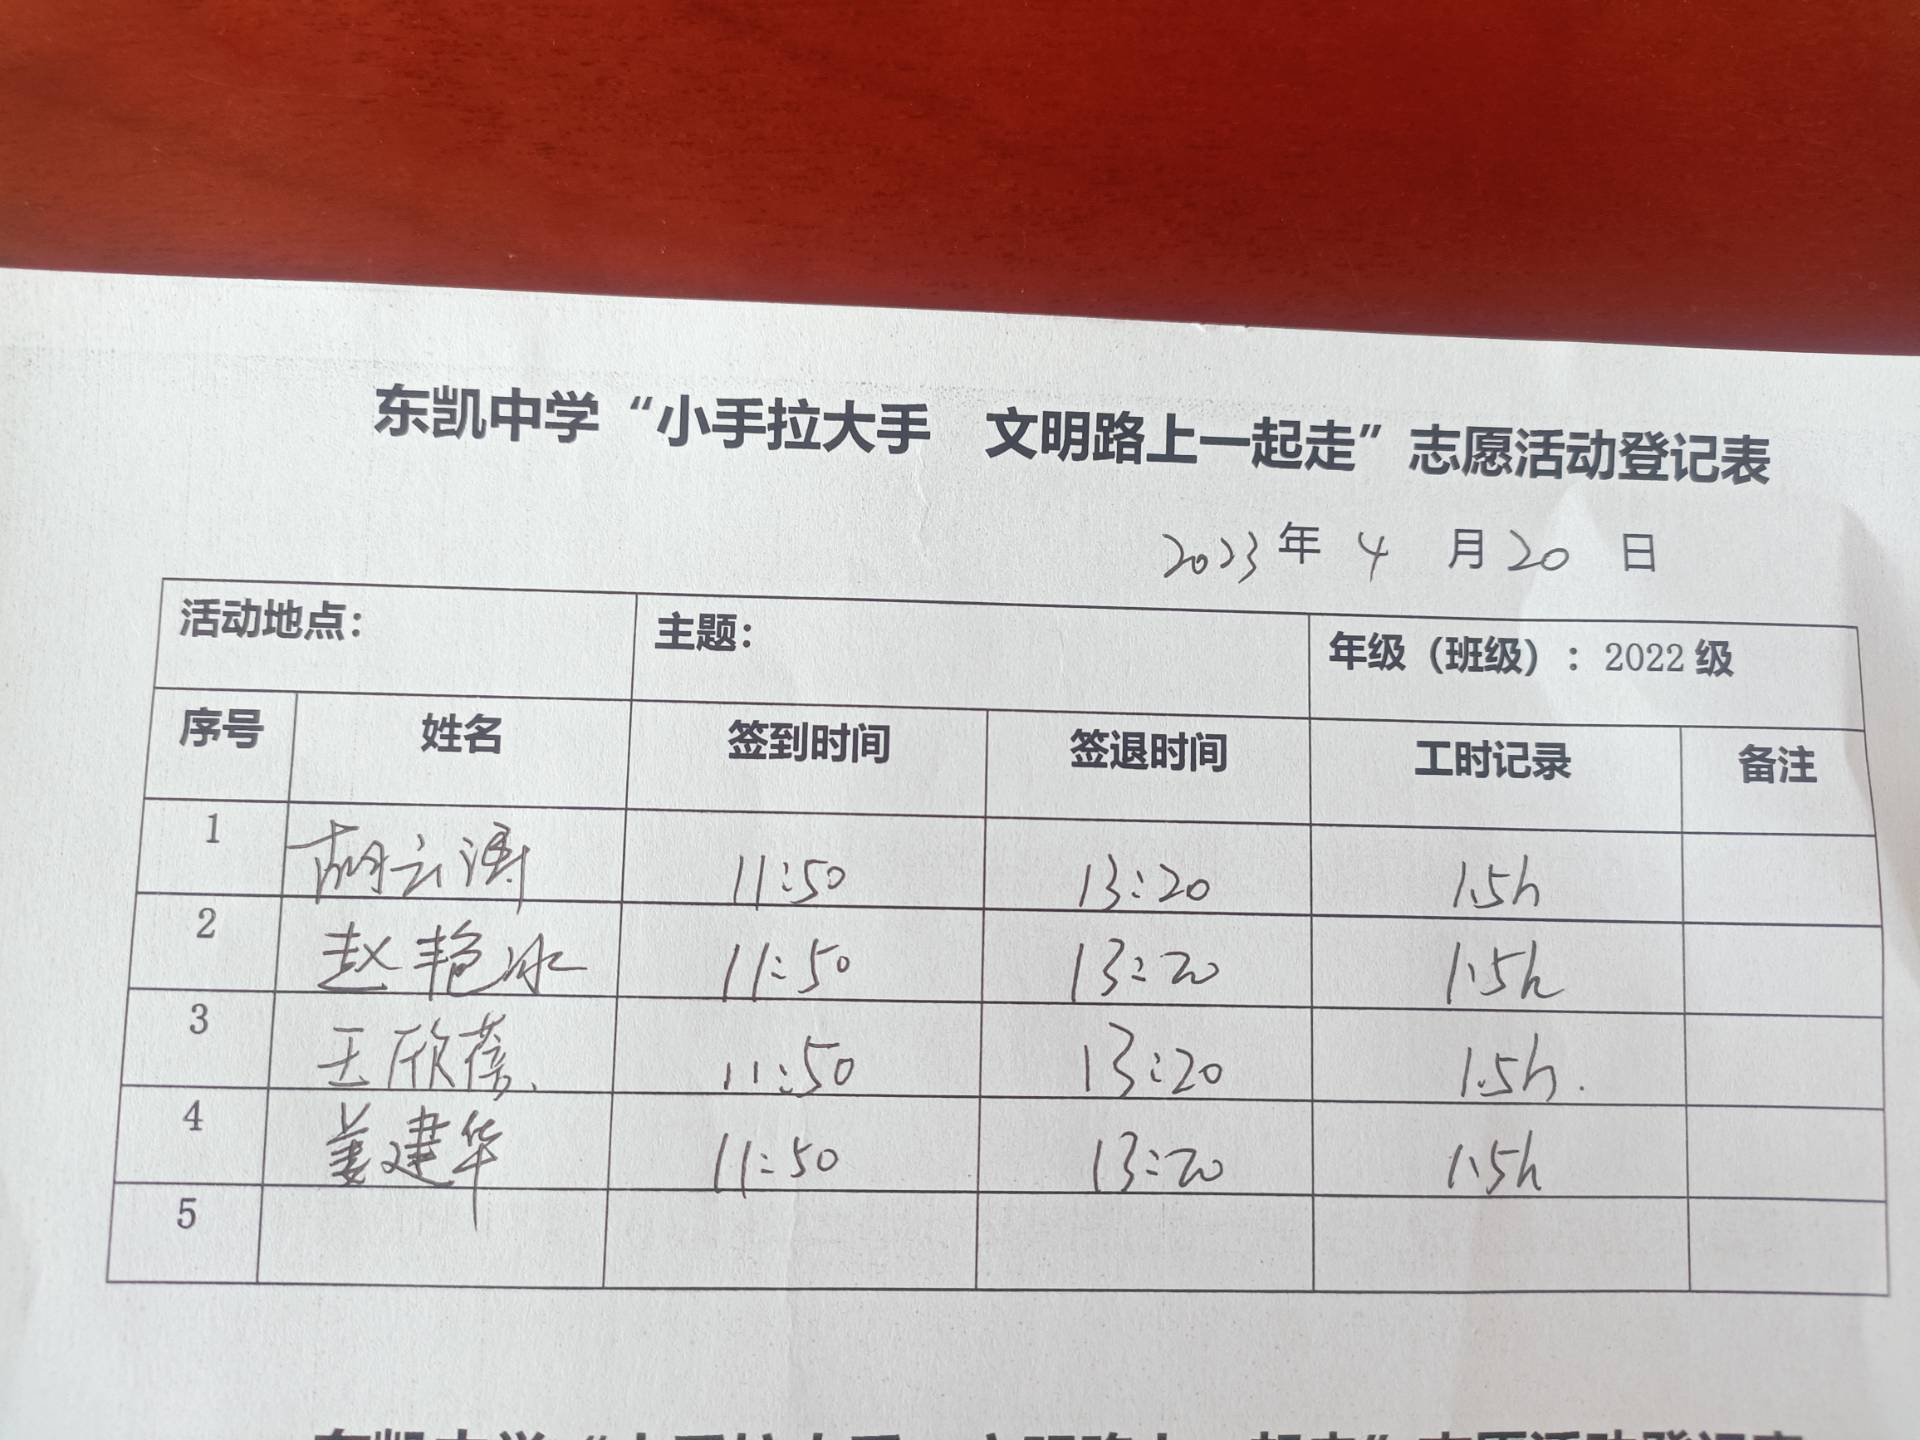 东凯中学“小手拉大手 文明路上一起走”志愿活动登记表
2023年 4 月 20 日
活动地点： 主题： 年级（班级）：2022级
序号 姓名 签到时间 签退时间 工时记录 备注
1 胡云涛 11:50 13:20 1.5h
2 赵艳冰 11:50 13:20 1.5h
3 王欣蓓 11:50 13:20 1.5h.
4 姜建华 11:50 13:20 1.5h
5